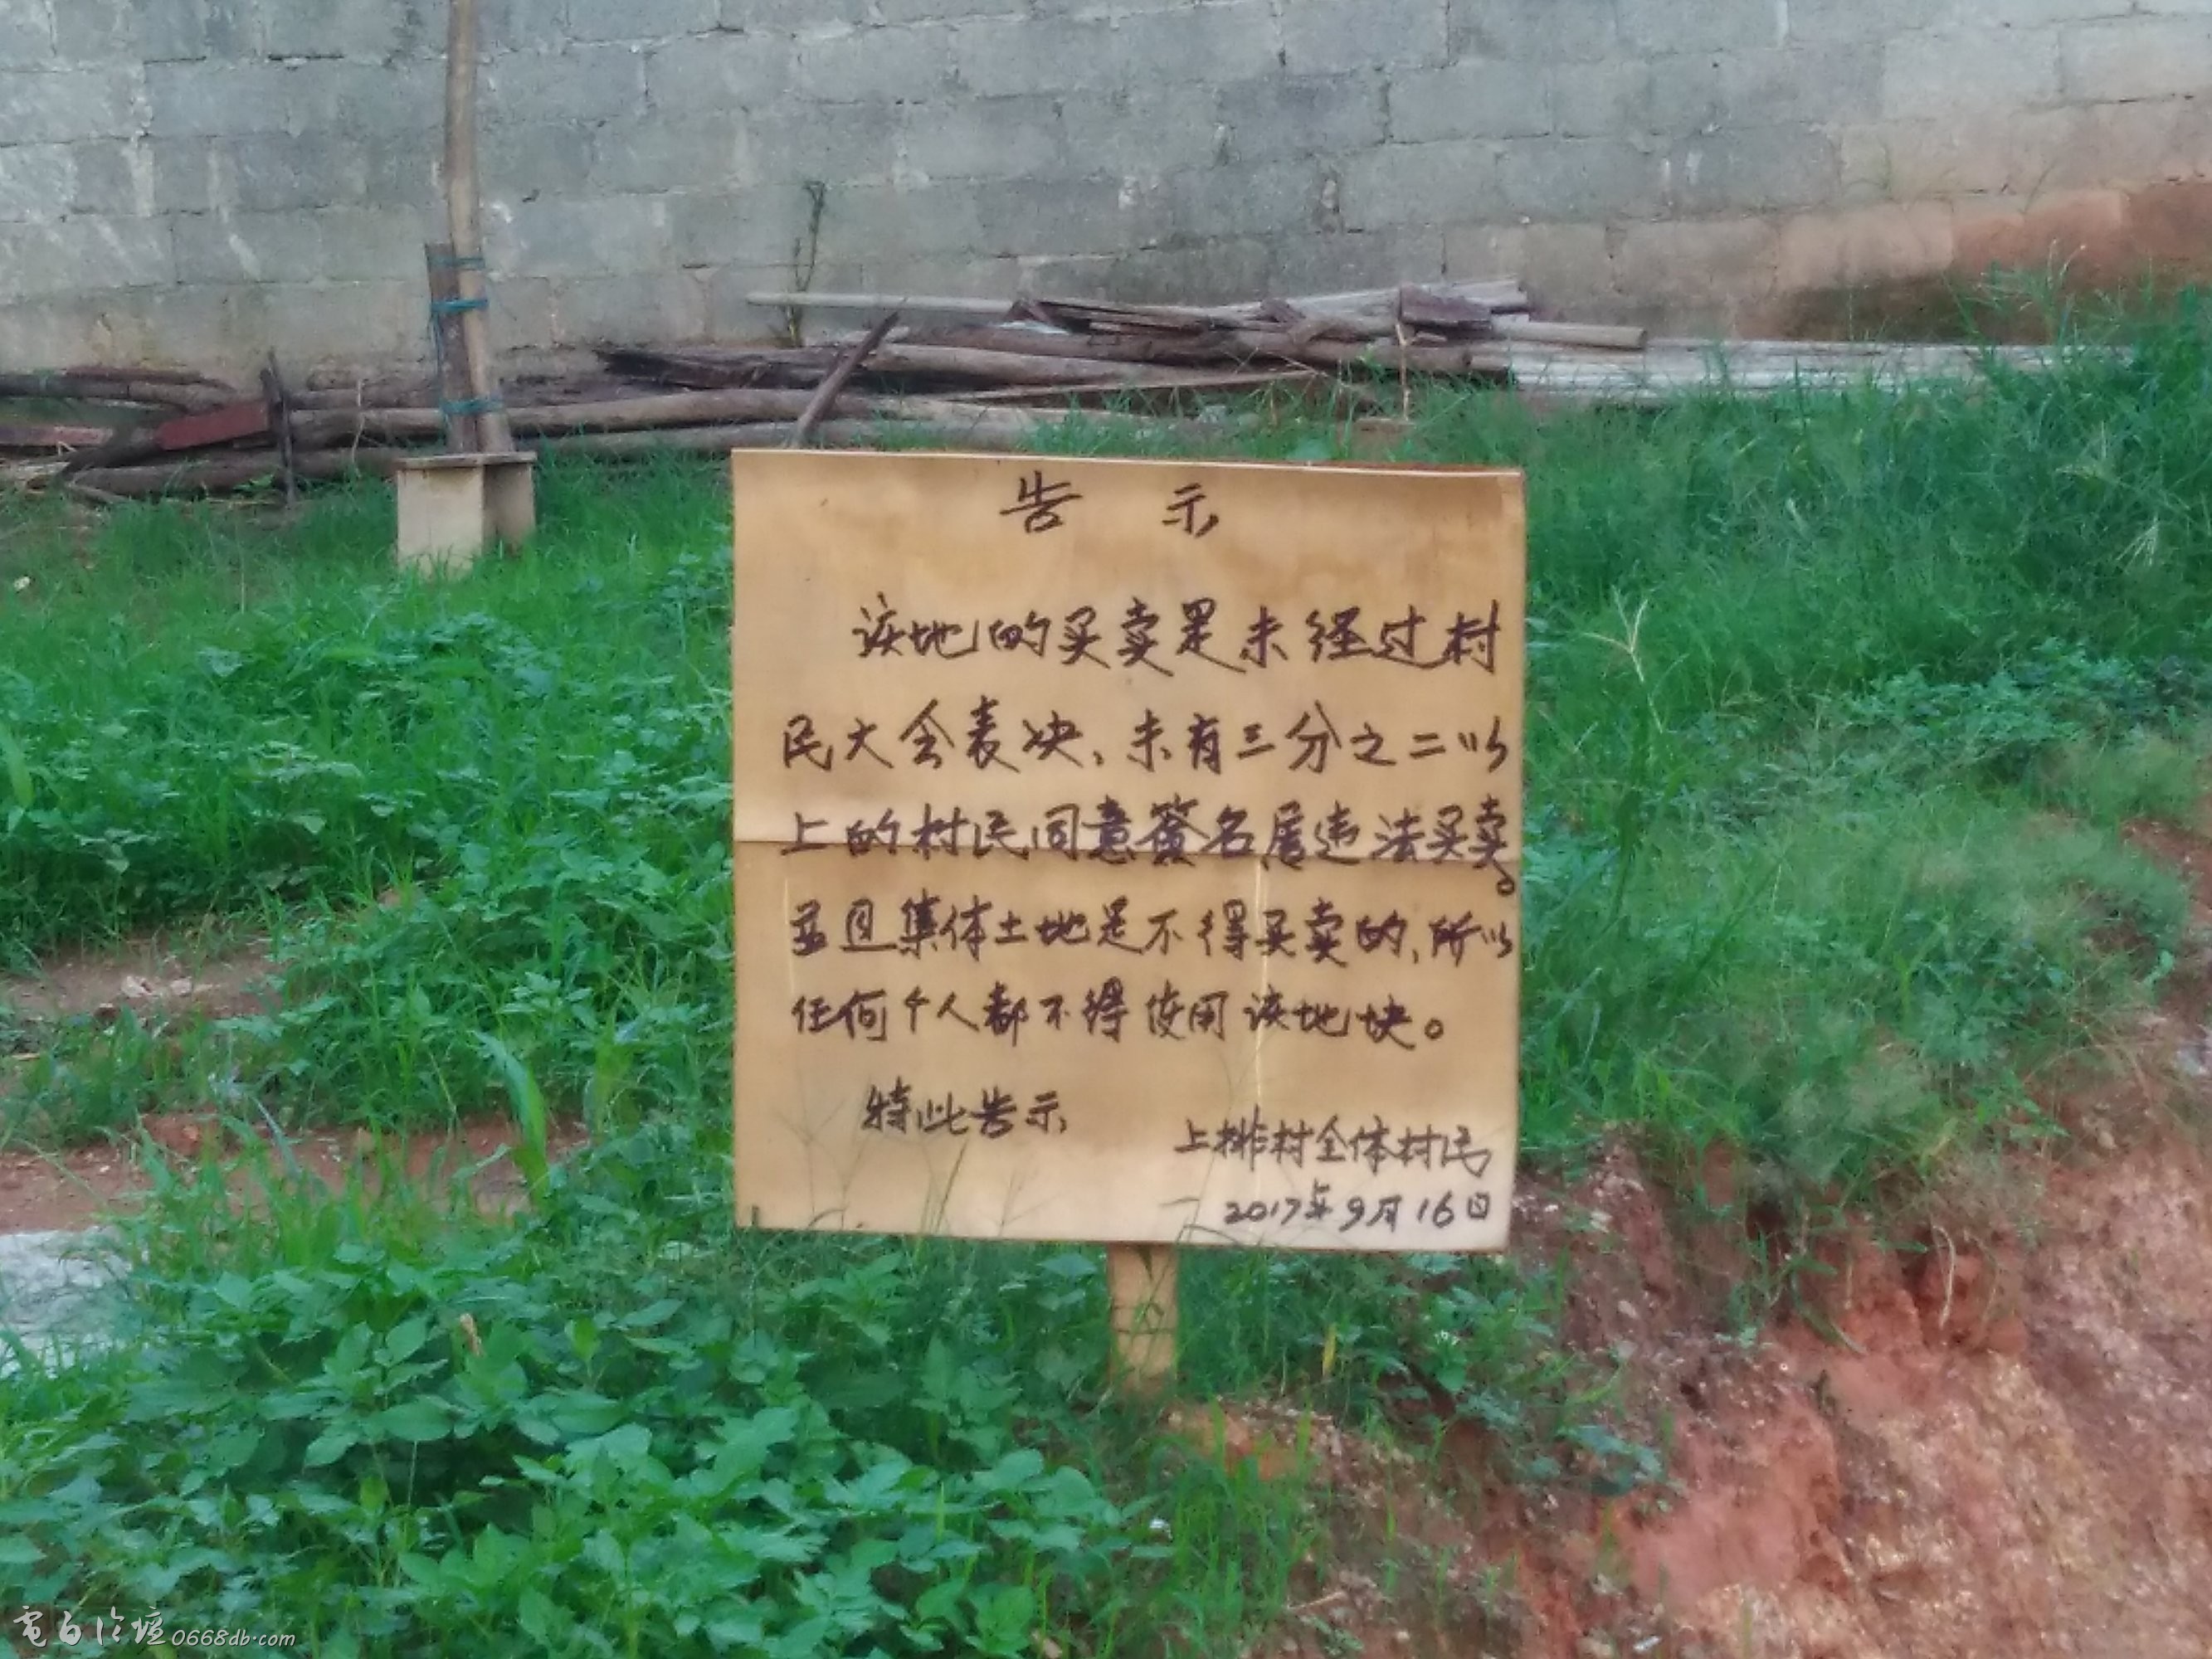 告 示
该地的买卖是未经过村
民大会表决、未有三分之二以
上的村民同意签名属违法买卖。
并且集体土地是不得买卖的,所以
任何个人都不得使用该地块。
特此告示
上排村全体村民
2017年9月16日
電白论壇0668db.com